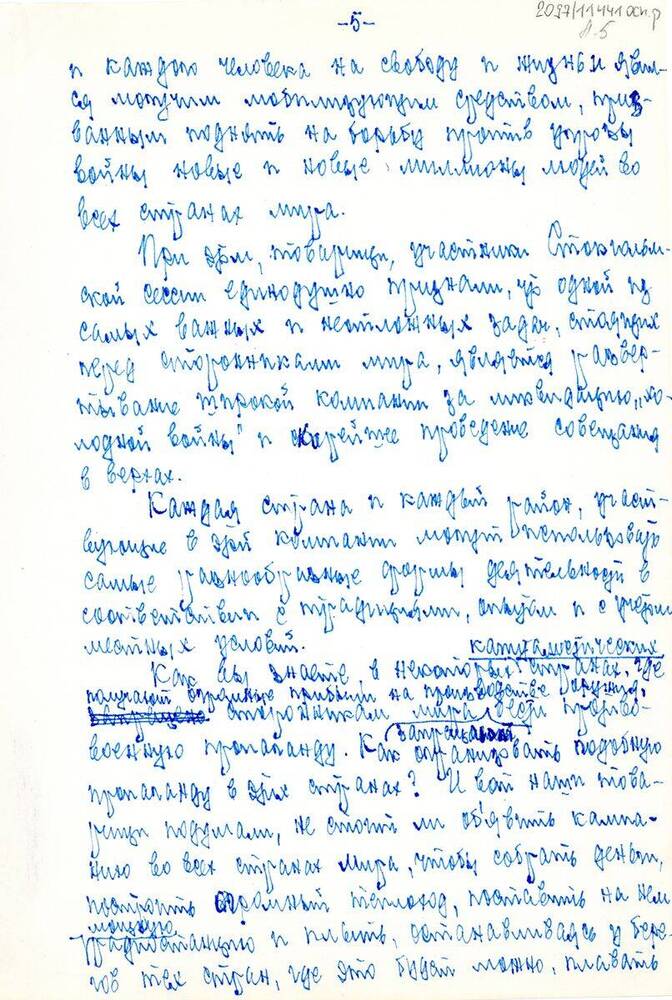 2097/11441 осн.р
л.5
-5-
и каждого человека на свободу и жизнь и явил-
ся могучим мобилизующим средством, приз-
ванным поднять на борьбу против угрозы
войны новые и новые миллионы людей во
всех странах мира.
При этом, товарищи, участники Стокгольм-
ской сессии единодушно признали, что одной из
самых важных и неотложных задач, стоящих
перед сторонниками мира, является развер-
тывание широкой компании за ликвидацию „хо-
лодной войны" и скорейшее проведение совещания
в верхах.
Каждая страна и каждый район, участ-
вующие в этой компании могут использовать
самые разнообразные формы деятельности в
соответствии с традициями, опытом и с учётом
местных условий.
капиталистических
Как вы знаете, в некоторых странах, где
получают огромные прибыли на производстве оружия,
запрещено сторонникам мира вести противо-
запрещают
военную пропаганду. Как организовать подобную
пропаганду в этих странах? И вот наши това-
рищи подумали, не стоит ли объявить кампа-
нию во всех странах мира, чтобы собрать деньги,
построить огромный теплоход, поставить на нем
мощную
радиостанцию и плыть, останавливаясь у бере-
гов тех стран, где это будет можно, плавать